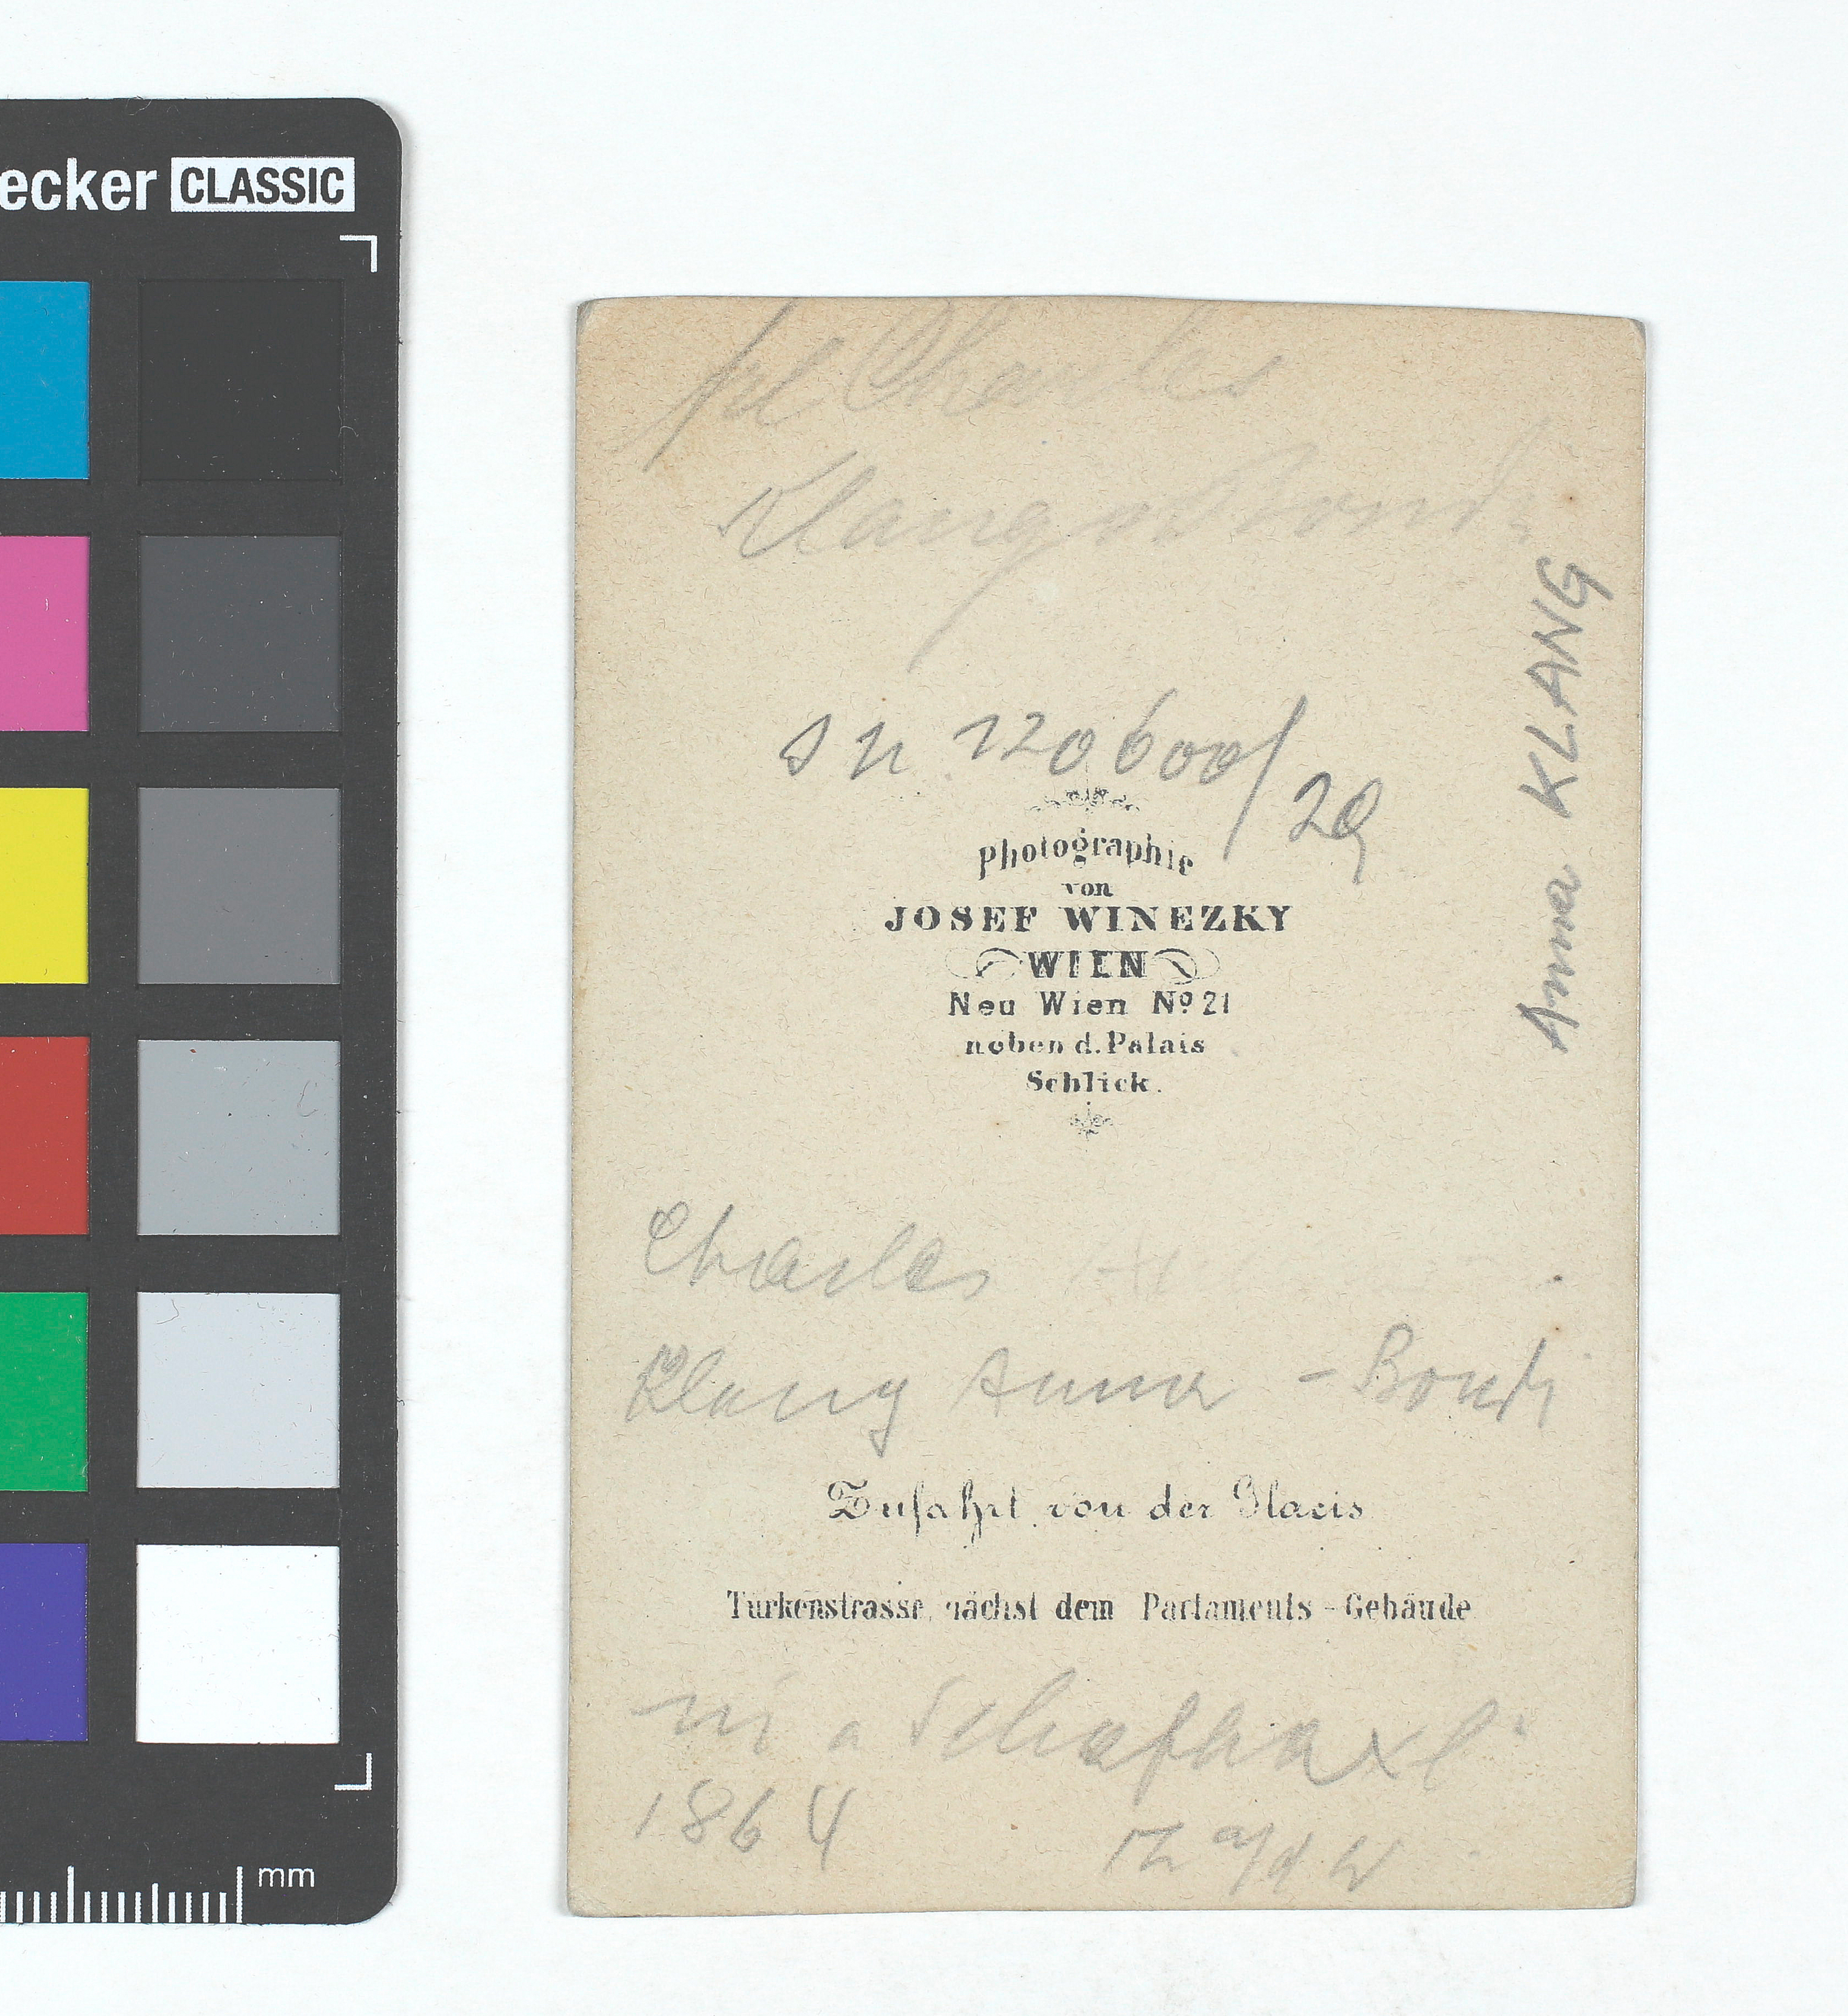 ecker CLASSIC
Charles
Klang Bondi
Anna KLANG
SN 120600/29
Photographie
von
JOSEF WINEZKY
WIEN
Neu Wien No 21
neben d. Palais
Schlick.
Charles
Klang Anna - Bondi
Zufahrt von der Glacis
Türkenstrasse, nächst dem Parlaments-Gebäude
a
1864
mm